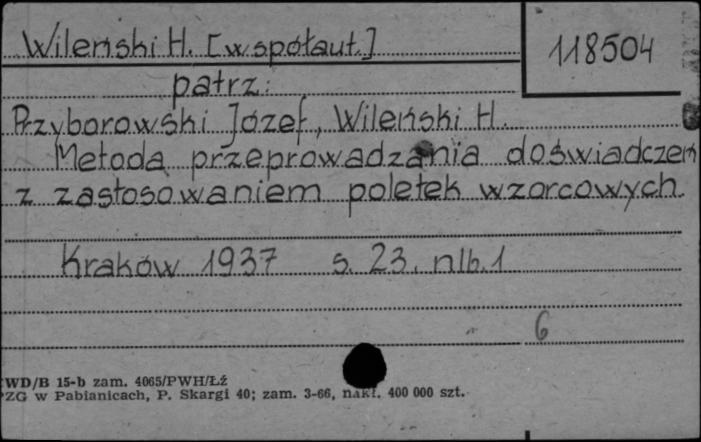 Wileński H. [współaut.]
118504
patrz:
Przyborowski Józef, Wileński H.
Metoda przeprowadzania doświadczeń
z zastosowaniem poletek wzorcowych.
Kraków 1937 s. 23, nlb. 1
6
WD/B 15-b zam. 4065/PWH/Łź
PZG w Pabianicach, P. Skargi 40; zam. 3-66, nakł. 400 000 szt.